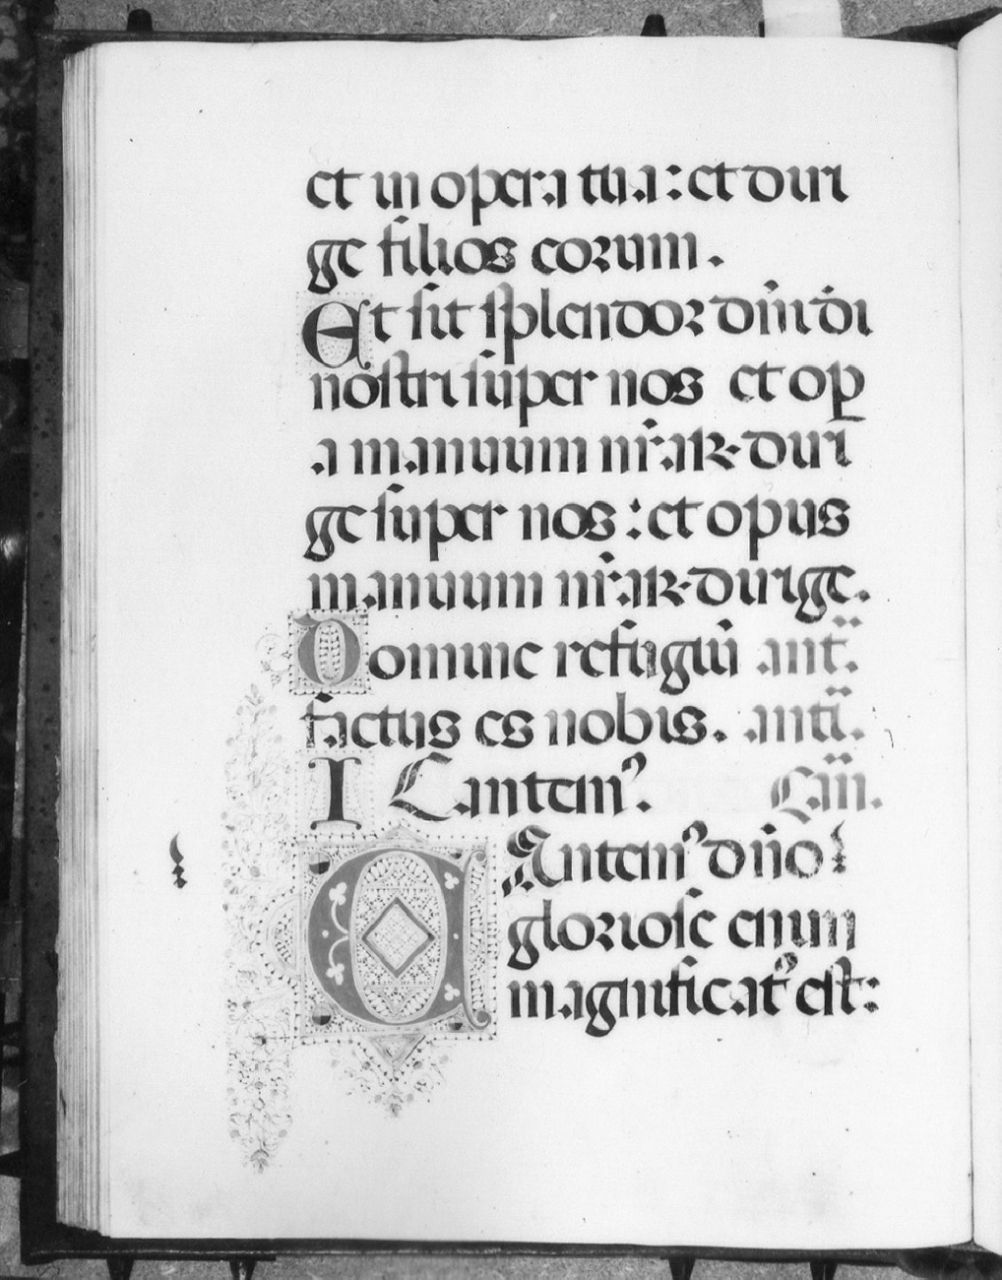 et in opera tua: et diri
ge filios eorum.
Et sit splendor dñi dı̇
nostri super nos et op̱
a manuum nr̃aꝝ diri
ge super nos: et opus
manuum nr̃aꝝ dirige.
Domine refugiũ ant̃.
factus es nobis. anti̋.
I Cantem᷒. Cañ.
CAntem᷒ dño:
gloriose enim
magnificat᷒ est: